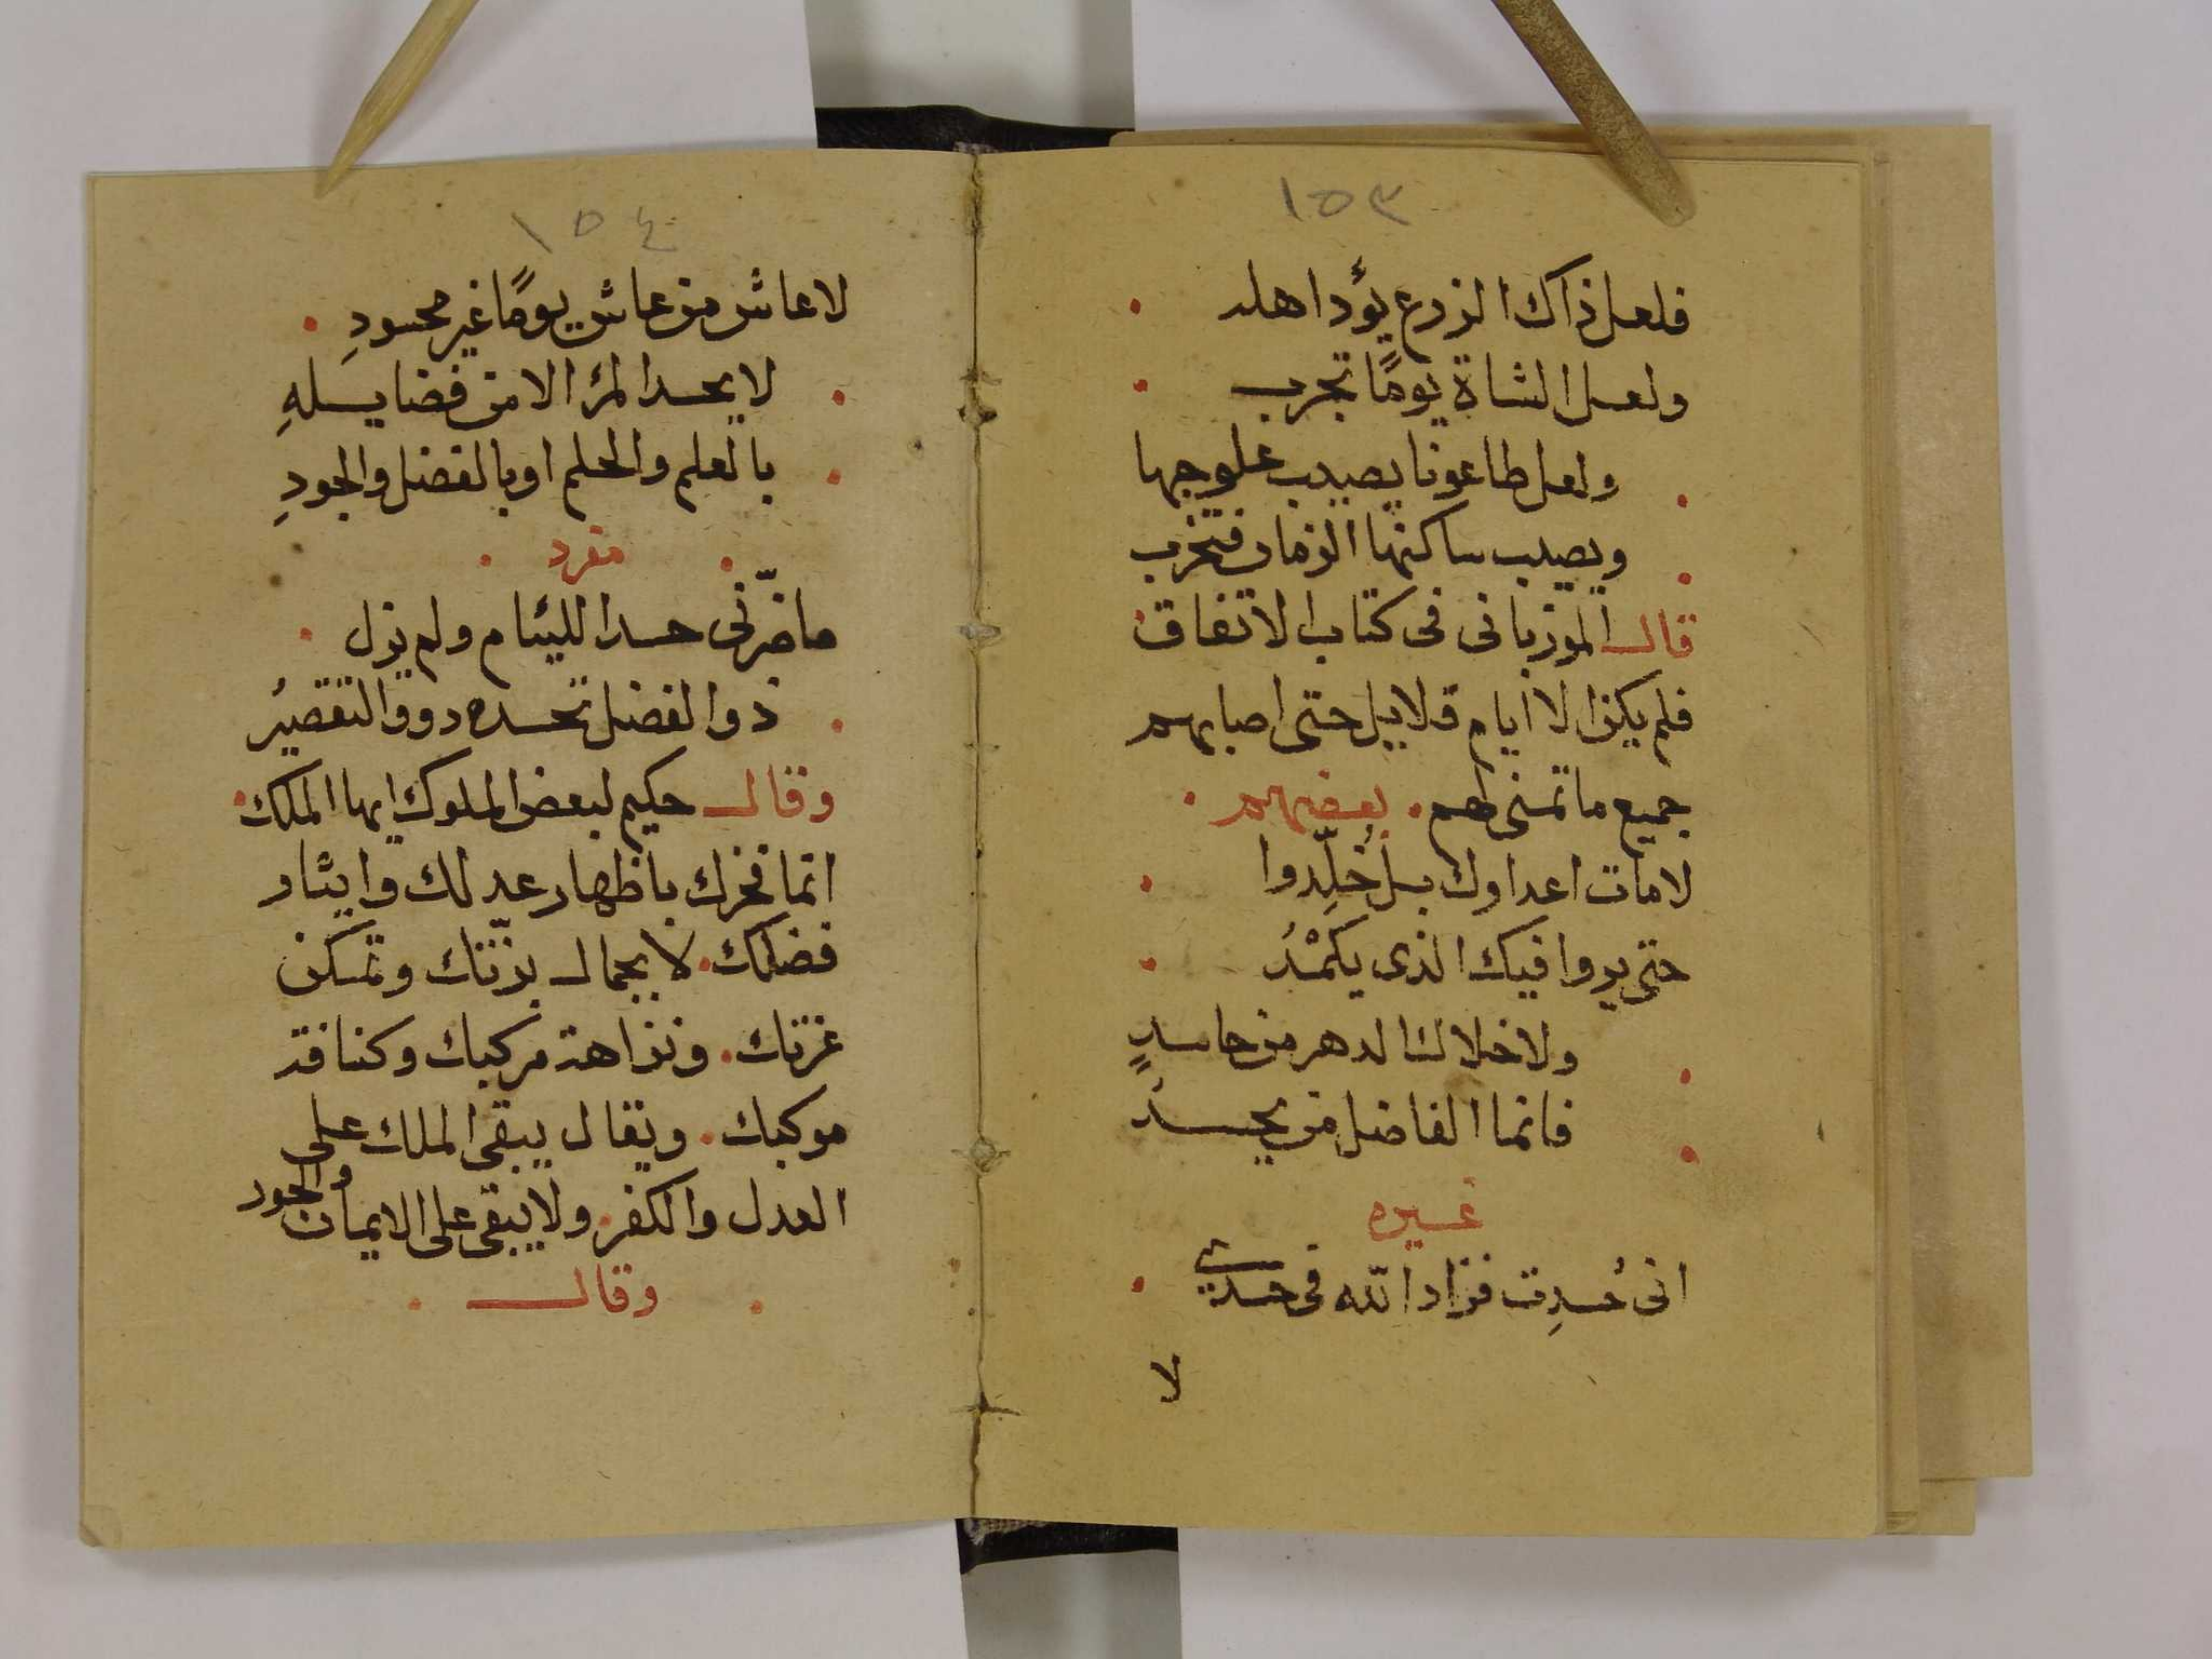 ١٥٣
فلعل ذاك الزرع يؤد اهله
ولعل الشاة يومًا تجرب
ولعل طاعونا يصيب علوجها
ويصيب ساكنها الزمان فتخرب
قال المرزبانى فى كتاب الاتفاق
فلم يكن الا ايام قلايل حتى اصابهم
جميع ما تمنى لهم . بعضهم
لامات اعداوك بل خلّدوا
حتى يروا فيك الذى يكْمَدُ
ولا خلاك الدهر من حاسدٍ
فانما الفاضل من يحسدُ
غيره
انى حُسِدت فزاد الله فى حسدى
لا
١٥٤
لا عاش من عاش يومًا غير محسودِ
لا يحسد المرٔ الا من فضايلهِ
بالعلم والحلم او بالفضل والجودِ
مفرد
ما ضرّنى حسد اللئام ولم يزل
ذو الفضل تحسده دوو التقصيرُ
وقال حكيم لبعض الملوك ايها الملك
انما فخرك باظهار عدلك وايثار
فضلك . لا بجمال بزّتك وتمكن
عزتك . ونزاهة مركبك وكثافة
موكبك . ويقال يبقى الملك على
العدل والكفر . ولا يبقى على الايمان والجور
وقال